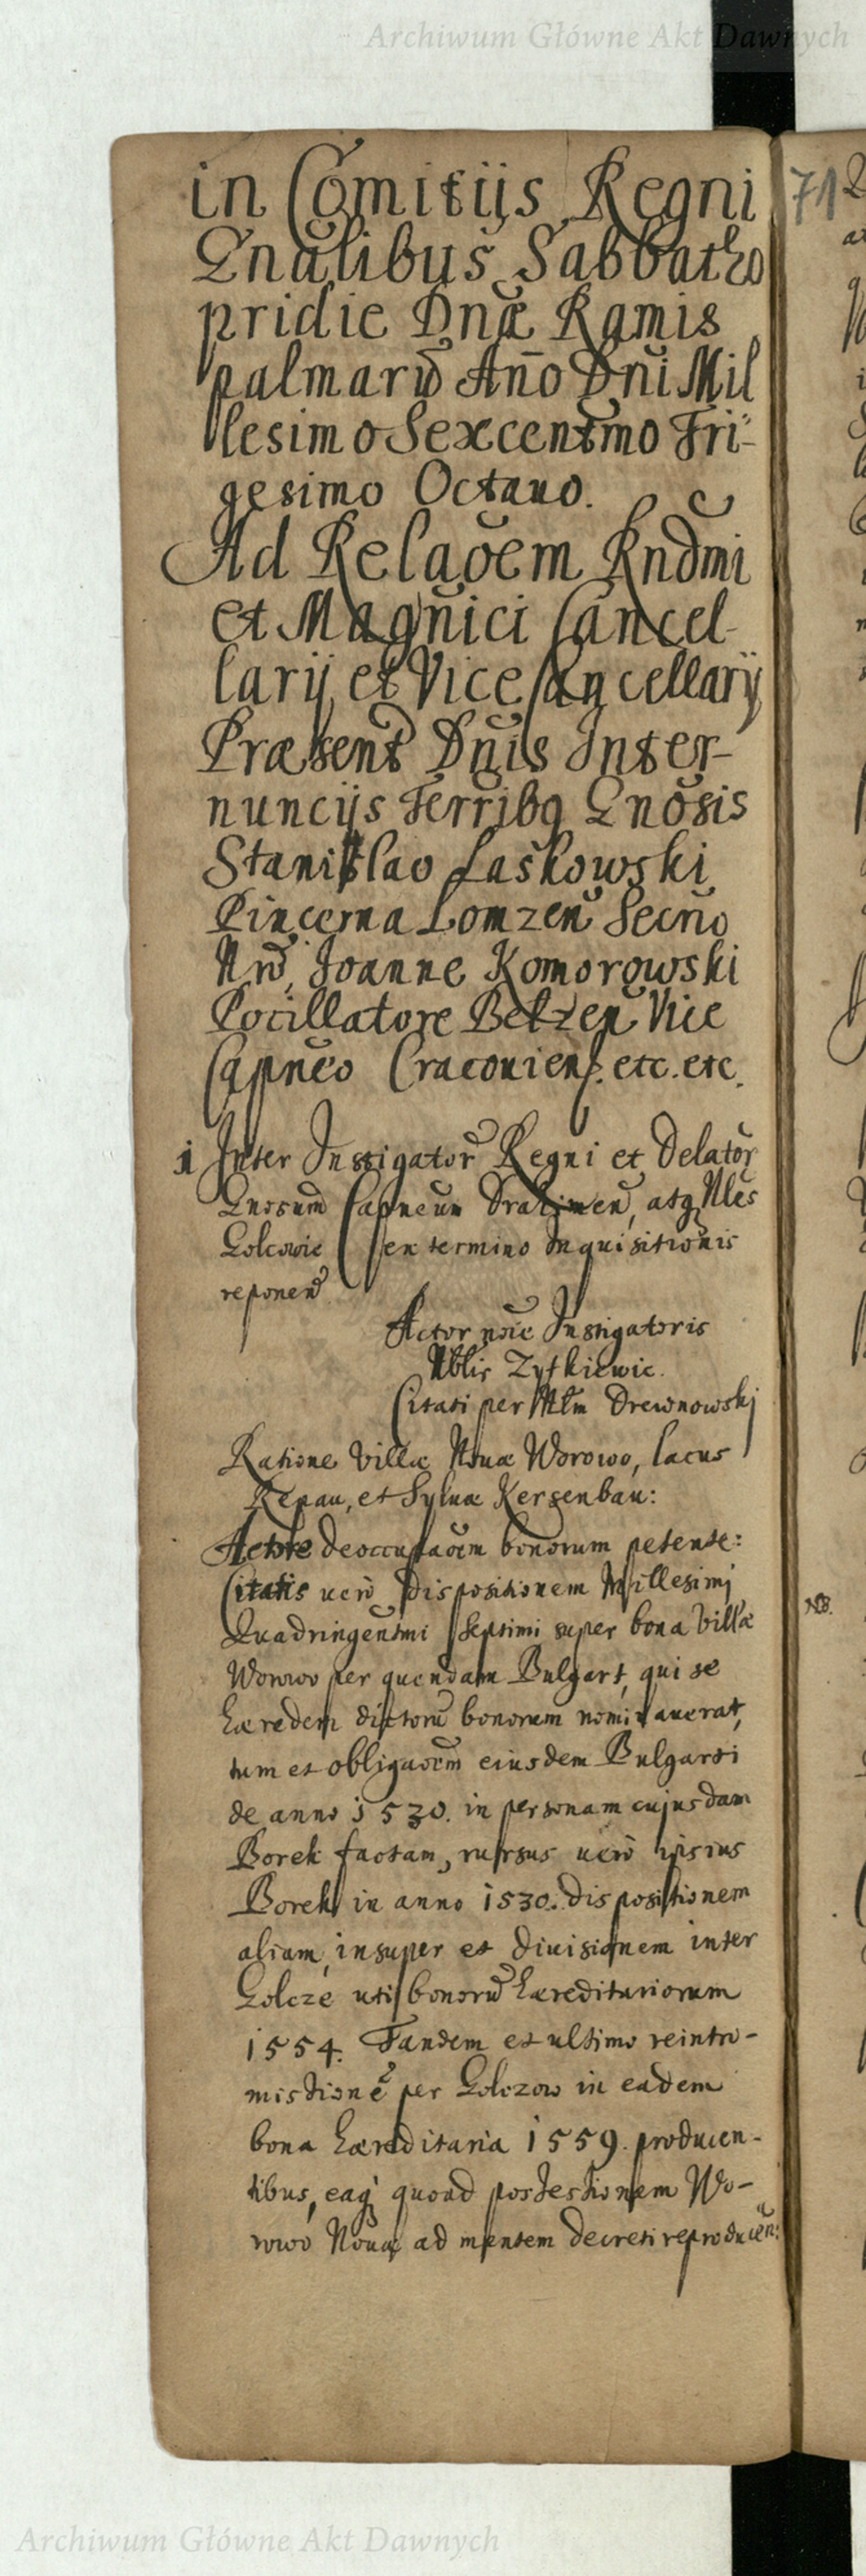 Archiwum Główne Akt Dawnych
in Comitijs Regni
Gnalibus Sabbatho
pridie Dnæ Ramis
palmarū Año Dni Mil
lesimo Sexcentmo Tri-
gesimo Octauo.
Ad Relaōem Rndmi
et Magnici Cancel-
larij et Vice Cancellarij
Præsent Dnis Inter-
nuncijs Terribq Gnosis
Stanislao Laskowski
Pincerna Lomzen Secrio
Nro, Joanne Komorowski
Pocillatore Belzen Vice
Capneo Cracouiens. etc. etc.
1 Inter Instigator Regni et Delator
Gnosum Capneum Drahimen, atq Nles
Golcowie sen termino inquisitionis
reponen
Actor noie Instigatoris
Nblis Zytkiewic.
Citati per Mlm Drewnowskj
Ratione Villæ Noua Worowo, lacus
Repau, et Syluæ Kersenbau:
Actore deoccupaōem bonorum petente:
Citatis uero dispositionem Millesimj
Quadringentmi Septimi super bona Villæ
Worowo per quendam Bulgart, qui se
hæredem dictorū bonorum nominauerat,
tum et obligaōem eiusdem Bulgarti
de anno 1530. in personam cujusdam
Borek factam, rursus uero ipsius
Borek in anno 1530. dispositionem
aliam, insuper et diuisionem inter
Golcze uti bonorū hæreditariorum
1554. Tandem et ultimo reintro-
missionē per Golczow in eadem
bona hæreditaria 1559. producen-
tibus, eaq quoad possessionem Wo-
rowo Noua ad mentem decreti reproducen:
71
NB.
Archiwum Główne Akt Dawnych